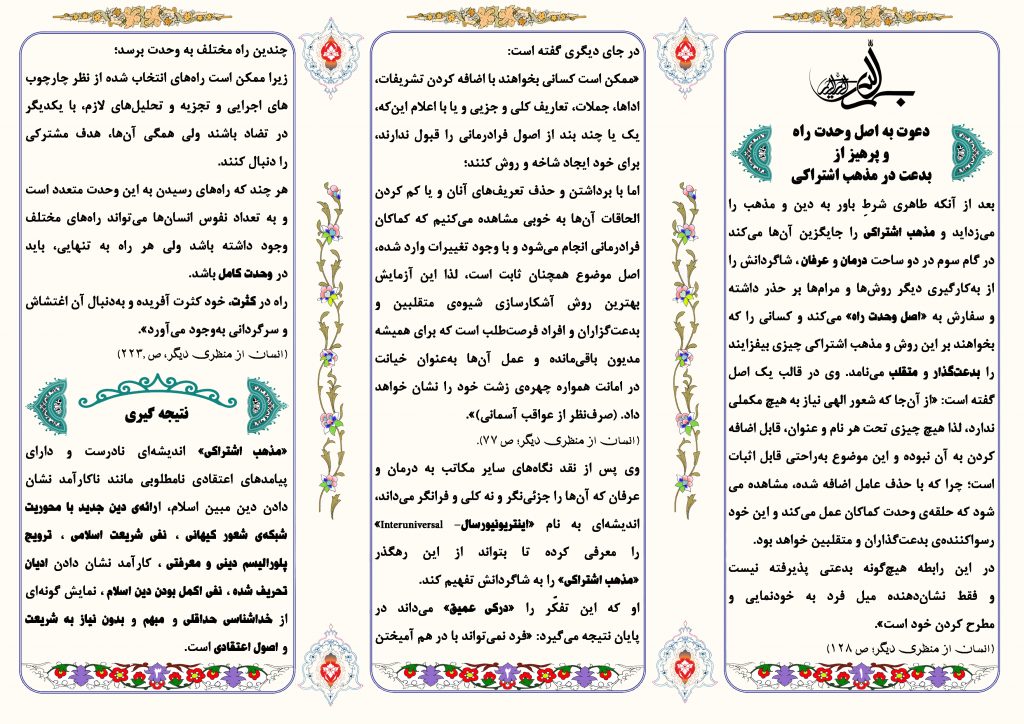 بسم الله الرحمن الرحیم
دعوت به اصل وحدت راه
و پرهیز از
بدعت در مذهب اشتراکی
بعد از آنکه طاهری شرطِ باور به دین و مذهب را
می‌زداید و مذهب اشتراکی را جایگزین آن‌ها می‌کند
در گام سوم در دو ساحت درمان و عرفان، شاگردانش را
از به‌کارگیری دیگر روش‌ها و مرام‌ها بر حذر داشته
و سفارش به «اصل وحدت راه» می‌کند و کسانی را که
بخواهند بر این روش و مذهب اشتراکی چیزی بیفزایند
را بدعت‌گذار و متقلب می‌نامد. وی در قالب یک اصل
گفته است: «از آن‌جا که شعور الهی نیاز به هیچ مکملی
ندارد، لذا هیچ چیزی تحت هر نام و عنوان، قابل اضافه
کردن به آن نبوده و این موضوع به‌راحتی قابل اثبات
است؛ چرا که با حذف عامل اضافه شده، مشاهده می
شود که حلقه‌ی وحدت کماکان عمل می‌کند و این خود
رسواکننده‌ی بدعت‌گذاران و متقلبین خواهد بود.
در این رابطه هیچ‌گونه بدعتی پذیرفته نیست
و فقط نشان‌دهنده میل فرد به خودنمایی و
مطرح کردن خود است».
(انسان از منظری دیگر؛ ص ۱۲۸)
در جای دیگری گفته است:
«ممکن است کسانی بخواهند با اضافه کردن تشریفات،
اداها، جملات، تعاریف کلی و جزیی و یا با اعلام این‌که،
یک یا چند بند از اصول فرادرمانی را قبول ندارند،
برای خود ایجاد شاخه و روش کنند؛
اما با برداشتن و حذف تعریف‌های آنان و یا کم کردن
الحاقات آن‌ها به خوبی مشاهده می‌کنیم که کماکان
فرادرمانی انجام می‌شود و با وجود تغییرات وارد شده،
اصل موضوع همچنان ثابت است، لذا این آزمایش
بهترین روش آشکارسازی شیوه‌ی متقلبین و
بدعت‌گزاران و افراد فرصت‌طلب است که برای همیشه
مدیون باقی‌مانده و عمل آن‌ها به‌عنوان خیانت
در امانت همواره چهره‌ی زشت خود را نشان خواهد
داد. (صرف‌نظر از عواقب آسمانی)».
(انسان از منظری دیگر؛ ص ۷۷).
وی پس از نقد نگاه‌های سایر مکاتب به درمان و
عرفان که آن‌ها را جزئی‌نگر و نه کلی و فرانگر می‌داند،
اندیشه‌ای به نام «اینتریونیورسال– Interuniversal»
را معرفی کرده تا بتواند از این رهگذر
«مذهب اشتراکی» را به شاگردانش تفهیم کند.
او که این تفکّر را «درکی عمیق» می‌داند در
پایان نتیجه می‌گیرد: «فرد نمی‌تواند با در هم آمیختن
چندین راه مختلف به وحدت برسد؛
زیرا ممکن است راه‌های انتخاب شده از نظر چارچوب
های اجرایی و تجزیه و تحلیل‌های لازم، با یکدیگر
در تضاد باشند ولی همگی آن‌ها، هدف مشترکی
را دنبال کنند.
هر چند که راه‌های رسیدن به این وحدت متعدد است
و به تعداد نفوس انسان‌ها می‌تواند راه‌های مختلف
وجود داشته باشد ولی هر راه به تنهایی، باید
در وحدت کامل باشد.
راه در کثرت، خود کثرت آفریده و به‌دنبال آن اغتشاش
و سرگردانی به‌وجود می‌آورد».
(انسان از منظری دیگر، ص ۲۲۳.)
نتیجه گیری
«مذهب اشتراکی» اندیشه‌ای نادرست و دارای
پیامدهای اعتقادی نامطلوبی مانند ناکارآمد نشان
دادن دین مبین اسلام، ارائه‌ی دین جدید با محوریت
شبکه‌ی شعور کیهانی ، نفی شریعت اسلامی ، ترویج
پلورالیسم دینی و معرفتی ، کارآمد نشان دادن ادیان
تحریف شده ، نفی اکمل بودن دین اسلام ، نمایش گونه‌ای
از خداشناسی حداقلی و مبهم و بدون نیاز به شریعت
و اصول اعتقادی است.